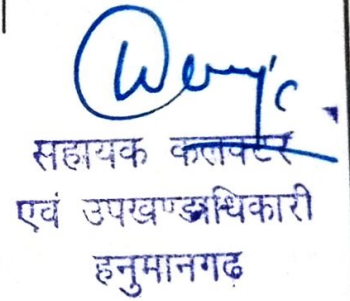 सहायक कलक्टर
एवं उपखण्डअधिकारी
हनुमानगढ़